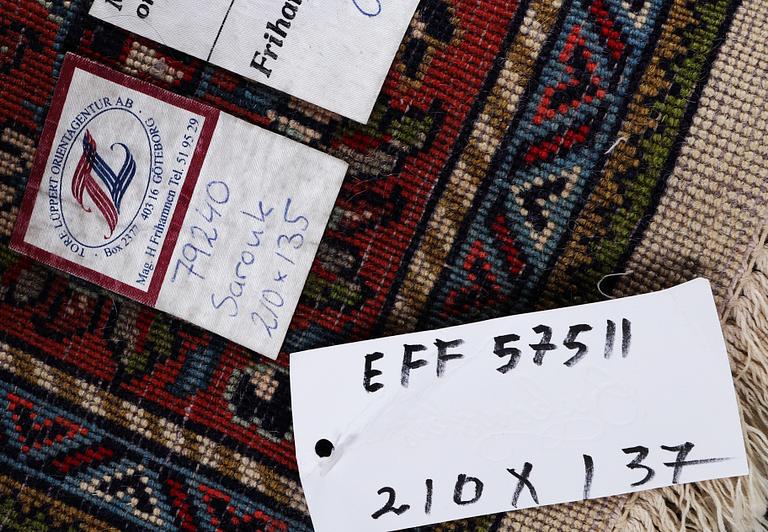 Frihar
TORE LÜPPERT ORIENTAGENTUR AB
Box 2377 403 16 GÖTEBORG
Mag. H Frihamnen Tel. 51 95 29
79240
Sarouk
210 x 135
EFF 57511
210 X 137